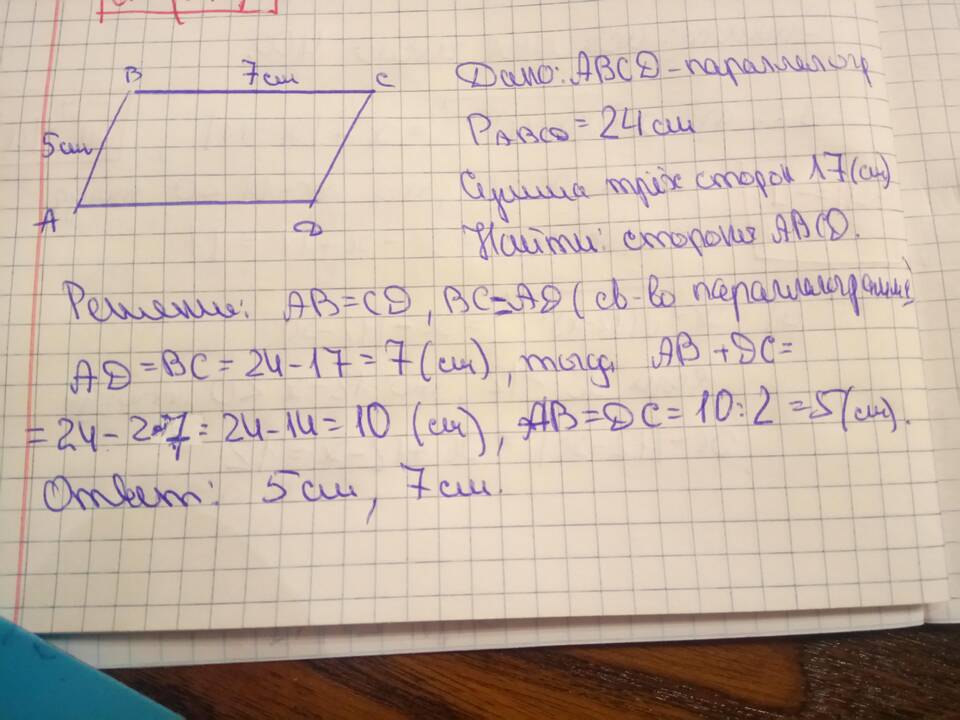 B 7см C
5см
A D
Дано: ABCD - параллелогр
PABCD = 24 см
Сумма трёх сторон 17(см)
Найти: стороны ABCD.
Решение: AB=CD, BC=AD (св-во параллелограмма)
AD=BC=24-17=7(см), тогда AB+DC=
=24-2·7=24-14=10 (см), AB=DC=10:2=5(см).
Ответ: 5см, 7см.